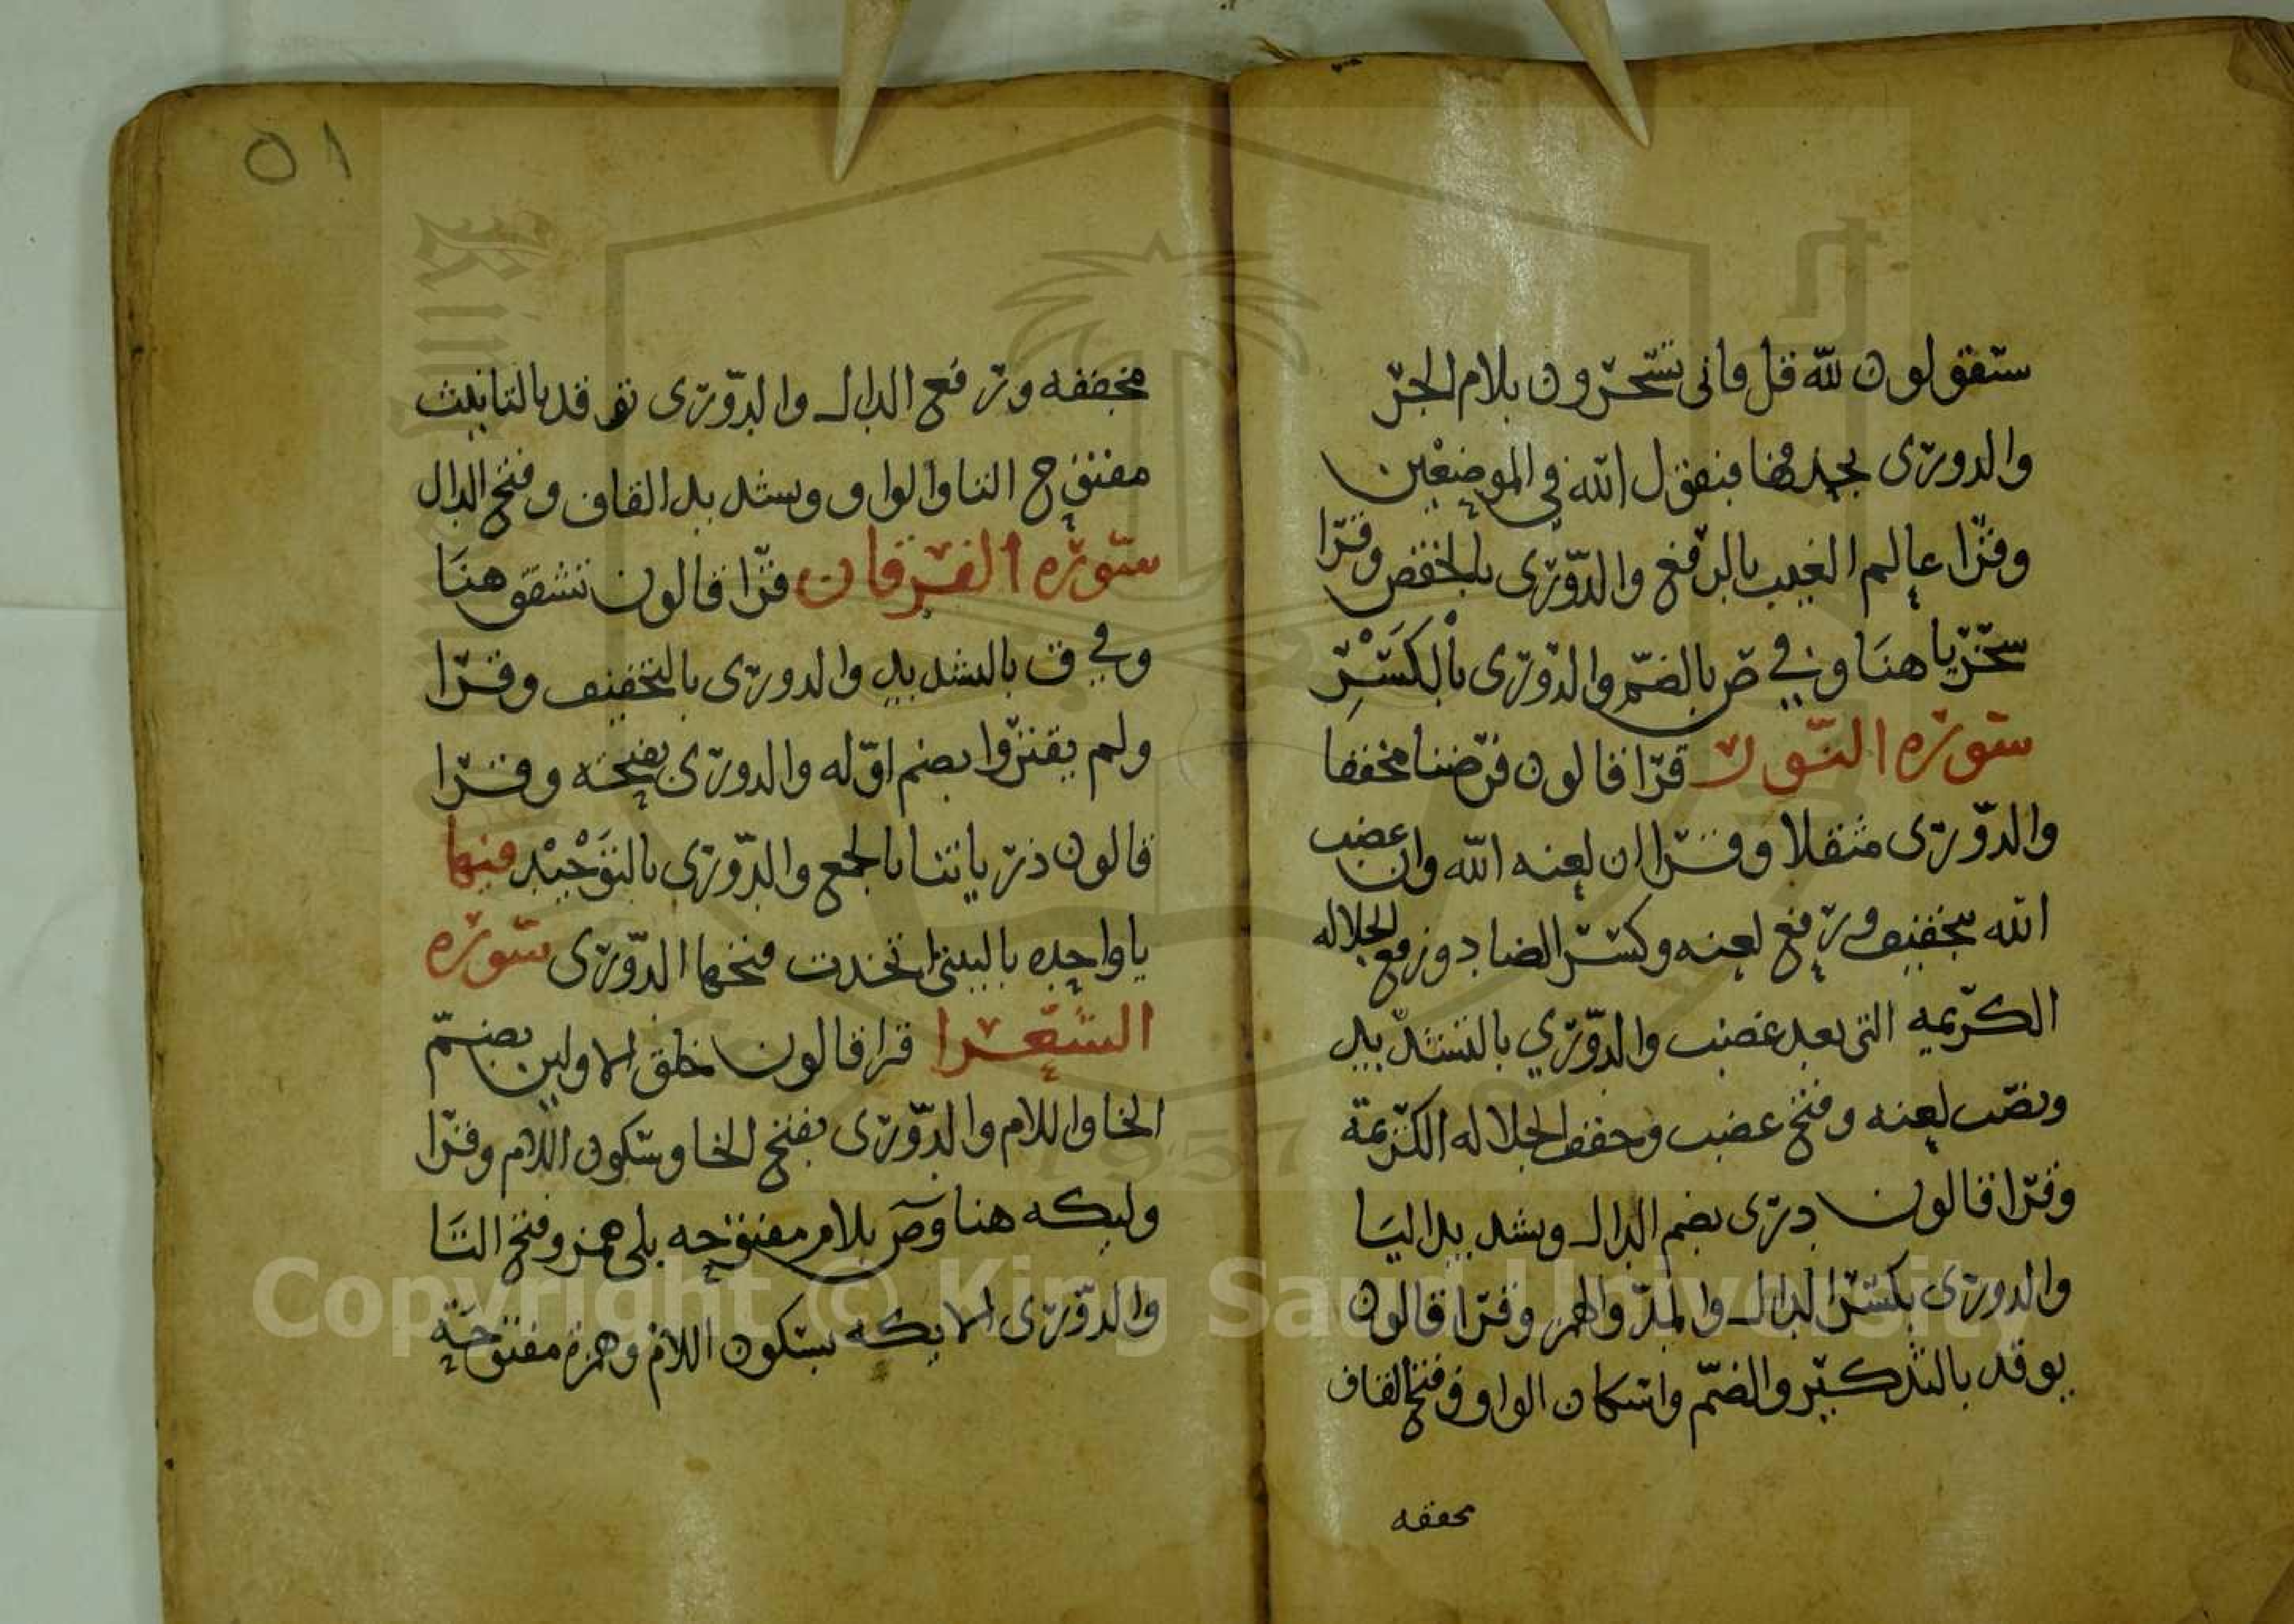 سيقولون لله قل فاني تسحرون بلام الجر
والدورى بحدفها فيقول الله في الموضعين
وقرا عالم الغيب بالرفع والدورى بالخفض وقرا
سخريا هنا وفي ص بالضم والدورى بالكسر
سوره النور قرا قالون فرضنا مخففا
والدورى مثقلا وقرا ان لعنه الله وان غضب
الله بتخفيف ورفع لعنه وكسر الضاد ورفع الجلاله
الكريمه التى بعد غضب والدوري بالتشديد
ونصب لعنه وفتح غضب وخفض الجلاله الكريمة
وقرا قالون درى بضم الدال وبشديد اليا
والدورى بكسر الدال والمد والهمز وقرا قالون
يوقد بالتذكير والضم واسكان الواو وفتح القاف
مخففه
مخففه ورفع الدال والدورى توقد بالتانيث
مفتوح التا والواو وبشديد القاف وفتح الدال
سوره الفرقان قرا قالون تشقق هنا
وفي ق بالشديد والدورى بالتخفيف وقرا
ولم يقتروا بضم اوله والدورى بفتحه وقرا
قالون ذرياتنا بالجمع والدورى بالتوحيد فيها
يا واحده ياليتنى اتخدت فتحها الدورى سوره
الشعرا قرا قالون خلق الاولين بضم
الخا واللام والدورى بفتح الخا وسكون اللام وقرا
وليكه هنا وص بلام مفتوحه بلى همز وفتح التا
والدورى الايكه بسكون اللام وهمزة مفتوحة
٥١
Copyright © King Saud University
1957